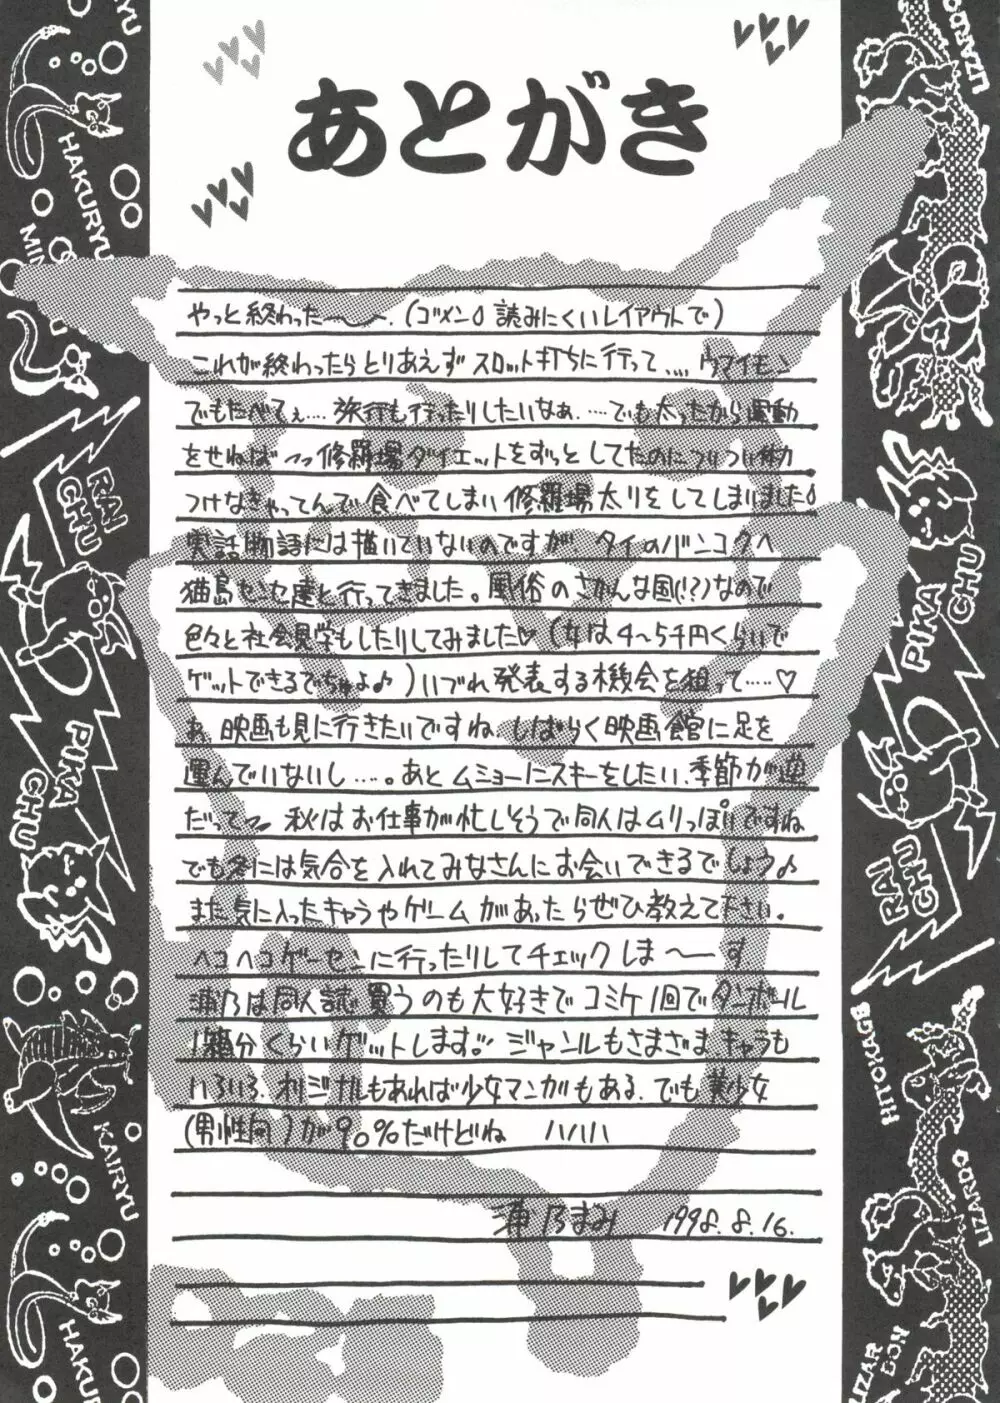 あとがき
やっと終わった〜〜。(ゴメン♢読みにくいレイアウトで)
これが終わったらとりあえずスロット打ちに行って、、、、ウマイモン
でもたべてぇ....旅行も行ったりしたいなぁ.....でも太ったから運動
をせねば〜っ修羅場ダイエットをずっとしてたのについつい体力
つけなきゃってんで食べてしまい修羅場太りをしてしまいました♢
実話物語には描いていないのですが、タイのバンコクへ
猫島センセ達と行ってきました。風俗のさかんな国(!?)なので
色々と社会見学もしたりしてみました♡(女は4〜5千円くらいで
ゲットできるでちゅよ♪)いづれ発表する機会を狙って.....♡
あ、映画も見に行きたいですね、しばらく映画館に足を
運んでいないし....。あとムショーにスキーをしたい、季節が逆
だってーっ 秋はお仕事が忙しそうで同人はムリっぽいですね
でも冬には気合を入れてみなさんにお会いできるでしょう♪
また気に入ったキャラやゲームがあったらぜひ教えて下さい。
ヘコヘコゲーセンに行ったりしてチェックしま〜〜す
浦乃は同人誌買うのも大好きでコミケ1回でダンボール
1箱分くらいゲットします。ジャンルもさまざま、キャラも
いろいろ、オリジナルもあれば少女マンガもある、でも美少女
(男性向)が90%だけどね ハハハ
浦乃まみ 1998.8.16.
HAKURYU
MIN
RAI
CHU
PIKA
CHU
KAIRYU
HAKURY
LIZARDO
PIKA
CHU
RAI
CHU
HITOKAGE
LIZARDO
LIZAR
DON